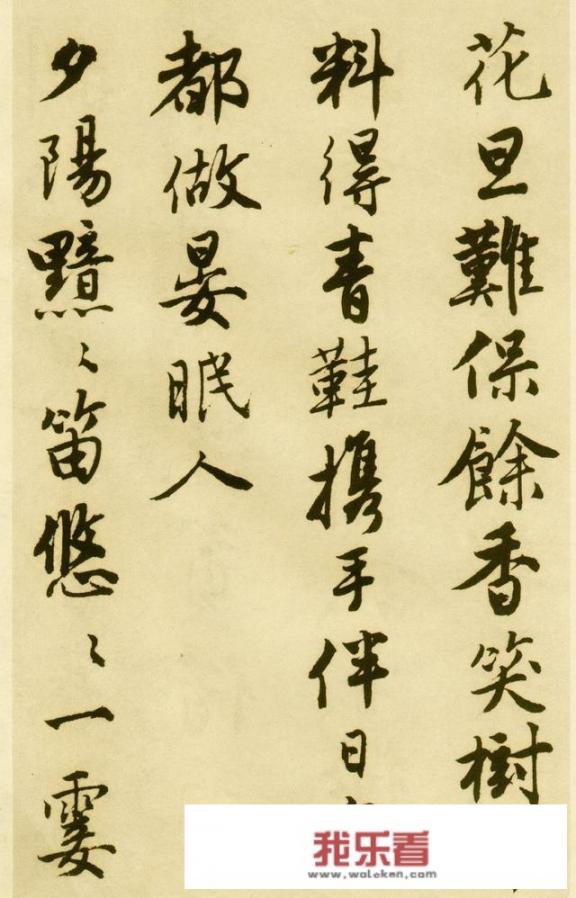 花旦難保餘香笑樹
料得青鞋携手伴日
都做晏眠人
夕陽黯〻笛悠〻一霎
我乐看
www.woleken.com